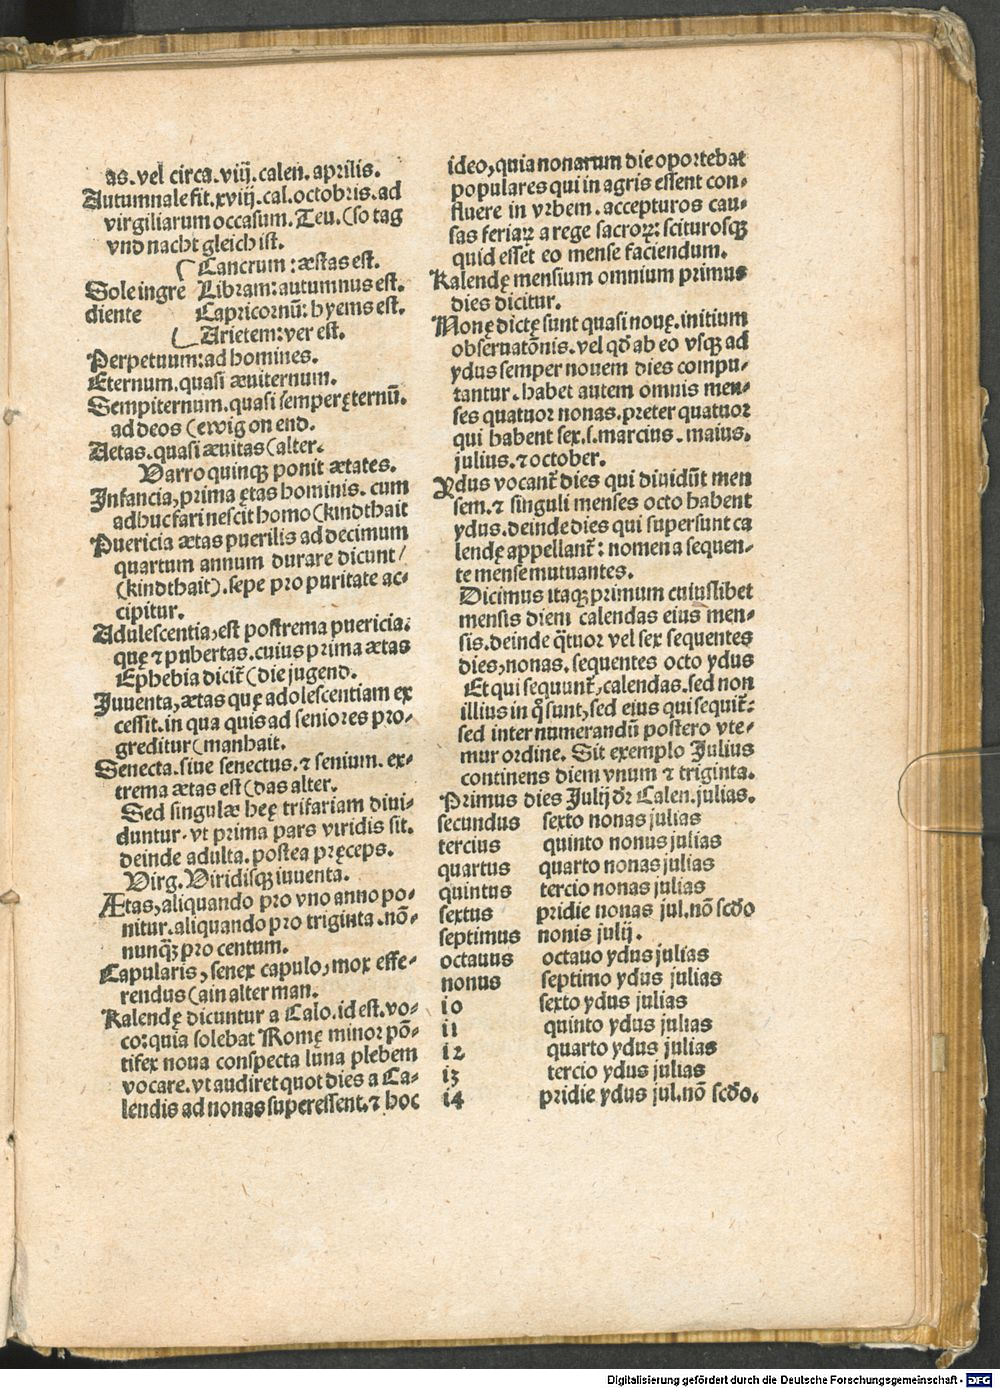 as.vel circa.viij.calen.aprilis.
Autumnale fit.xviij.cal.octobris.ad
virgiliarum occasum.Teu.(so tag
vnd nacht gleich ist.
Cancrum:æstas est.
Sole ingre Libram:autumnus est.
diente Capricornū:hyems est.
Arietem:ver est.
Perpetuum:ad homines.
Eternum.quasi æuiternum.
Sempiternum.quasi semper ęternū.
ad deos (ewig on end.
Aetas.quasi æuitas(alter.
Varro quinqꝫ ponit ætates.
Infancia,prima ętas hominis.cum
adhuc fari nescit homo(kindthait
Puericia ætas puerilis ad decimum
quartum annum durare dicunt/
(kindthait).sepe pro puritate ac-
cipitur.
Adulescentia,est postrema puericia:
quę ⁊ pubertas.cuius prima ætas
Ephebia dicit̄(die jugend.
Juuenta,ætas quę adolescentiam ex
cessit.in qua quis ad seniores pro-
greditur(manhait.
Senecta.siue senectus.⁊ senium.ex-
trema ætas est(das alter.
Sed singulæ heę trifariam diui-
duntur.vt prima pars viridis sit.
deinde adulta.postea pręceps.
Virg.Viridisqꝫ iuuenta.
Ætas,aliquando pro vno anno po-
nitur.aliquando pro triginta.nō-
nunqꝫ pro centum.
Capularis,senex capulo,mox effe-
rendus(ain alter man.
Kalendę dicuntur a Calo.id est.vo-
co:quia solebat Romę minor pō-
tifex noua conspecta luna plebem
vocare.vt audiret quot dies a Ca-
lendis ad nonas superessent.⁊ hoc
ideo,quia nonarum die oportebat
populares qui in agris essent con-
fluere in vrbem.accepturos cau-
sas feriaꝝ a rege sacroꝝ:sciturosqꝫ
quid esset eo mense faciendum.
Kalendę mensium omnium primus
dies dicitur.
Nonę dictę sunt quasi nouę.initium
obseruatōnis.vel qđ ab eo vsqꝫ ad
ydus semper nouem dies compu-
tantur.habet autem omnis men-
ses quatuor nonas.preter quatuor
qui habent sex.s.marcius.maius.
julius.⁊ october.
Ydus vocant̄ dies qui diuidūt men
sem.⁊ singuli menses octo habent
ydus.deinde dies qui supersunt ca
lendę appellant̄:nomen a sequen-
te mense mutuantes.
Dicimus itaqꝫ primum cuiuslibet
mensis diem calendas eius men-
sis.deinde q̄tuor vel sex sequentes
dies,nonas.sequentes octo ydus
Et qui sequunt̄,calendas.sed non
illius in q̊ sunt,sed eius qui sequit̄:
sed inter numerandū postero vte-
mur ordine. Sit exemplo Julius
continens diem vnum ⁊ triginta.
Primus dies Julij dr̄ Calen.julias.
secundus sexto nonas julias
tercius quinto nonus julias
quartus quarto nonas julias
quintus tercio nonas julias
sextus pridie nonas jul.nō scđo
septimus nonis julij.
octauus octauo ydus julias
nonus septimo ydus julias
10 sexto ydus julias
11 quinto ydus julias
12 quarto ydus julias
13 tercio ydus julias
14 pridie ydus jul.nō scđo.
Digitalisierung gefördert durch die Deutsche Forschungsgemeinschaft - DFG